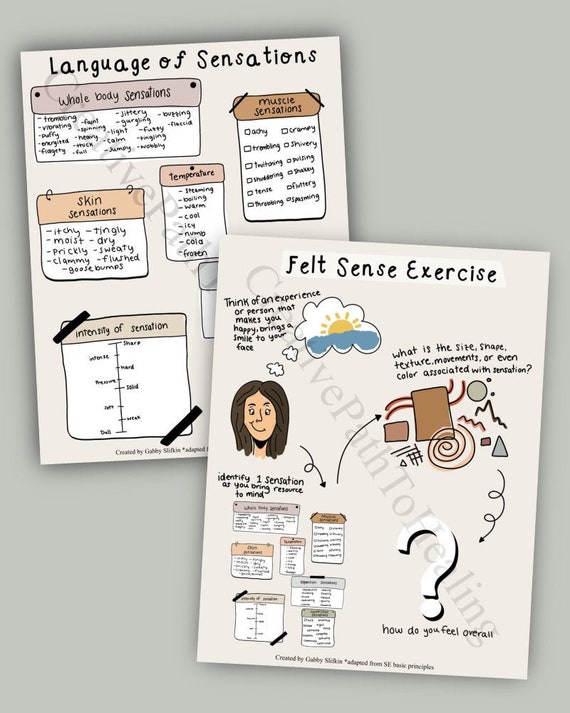 Language of Sensations
Whole body sensations
-trembling
-vibrating
-puffy
-energized
-fidgety
-faint
-spinning
-heavy
-thick
-full
-jittery
-gurgling
-light
-calm
-jumpy
-buzzing
-fuzzy
-flaccid
-tingling
-wobbly
muscle
sensations
achy
crampy
trembling
shivery
twitching
pulsing
shuddering
shakey
tense
fluttery
throbbing
spasming
temperature
-steaming
-boiling
-warm
-cool
-icy
-numb
-cold
-frozen
skin
sensations
-itchy -tingly
-moist -dry
-prickly -sweaty
-clammy -flushed
-goosebumps
intensity of sensation
sharp
intense
hard
pressure
solid
soft
weak
Dull
Created by Gabby Slifkin *adapted from SE
Felt Sense Exercise
Think of an experience
or person that
makes you
happy, brings a
smile to your
face
what is the size, shape,
texture, movements, or even
color associated with sensation?
identify 1 sensation
as you bring resource
to mind
whole body sensations
muscle
sensations
temperature
skin
sensations
intensity of sensation
?
how do you feel overall
Created by Gabby Slifkin *adapted from SE basic principles
CreativePathToHealing
CreativePathToHealing